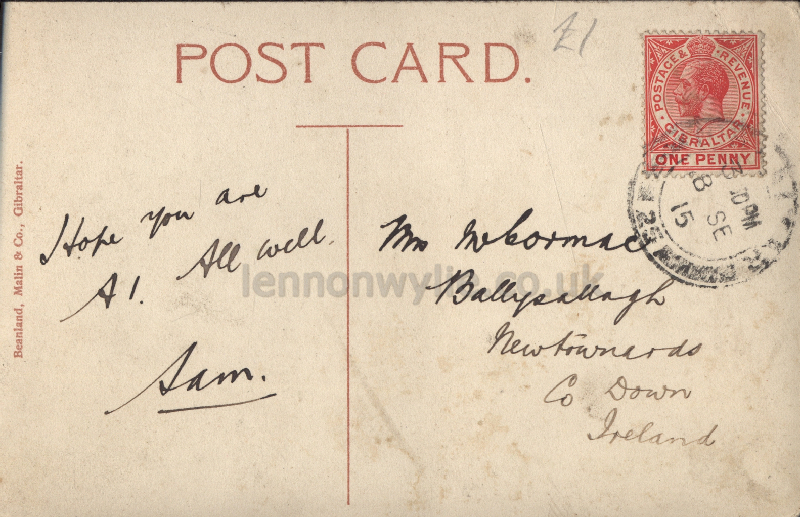 POST CARD.
£1
POSTAGE & REVENUE
GIBRALTAR
ONE PENNY
3 PM
8 SE
15
Beanland, Malin & Co., Gibraltar.
Hope you are
A1. All well.
Sam.
Mrs McCormac
Ballysallagh
Newtownards
Co Down
Ireland
lennonwylie.co.uk